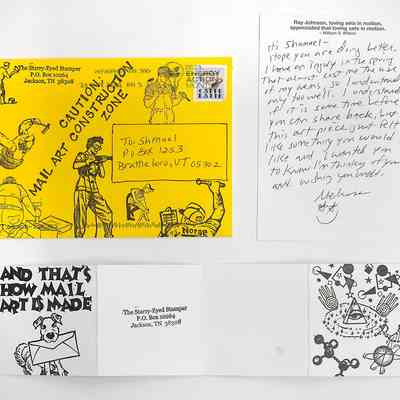 The Starry-Eyed Stamper
P.O. Box 10264
Jackson, TN 38308
CAUTION:
MAIL ART CONSTRUCTION
ZONE
To: Shmuel
PO Box 1253
Brattleboro, VT 05302
Ray Johnson, loving sets in motion,
appreciated that loving sets in motion.
- William S. Wilson
Hi Shmuel-
I hope you are doing better.
I have an injury in the spring
that almost cost me the use
of my arms, so I understand
may too well. I understand
if it is some time before
you can share back, but
this art piece just felt
like something you would
like and I wanted you
to know I'm thinking of you
and wishing you well.
Melissa
AND THAT'S
HOW MAIL
ART IS MADE
The Starry-Eyed Stamper
P.O. Box 10264
Jackson, TN 38308